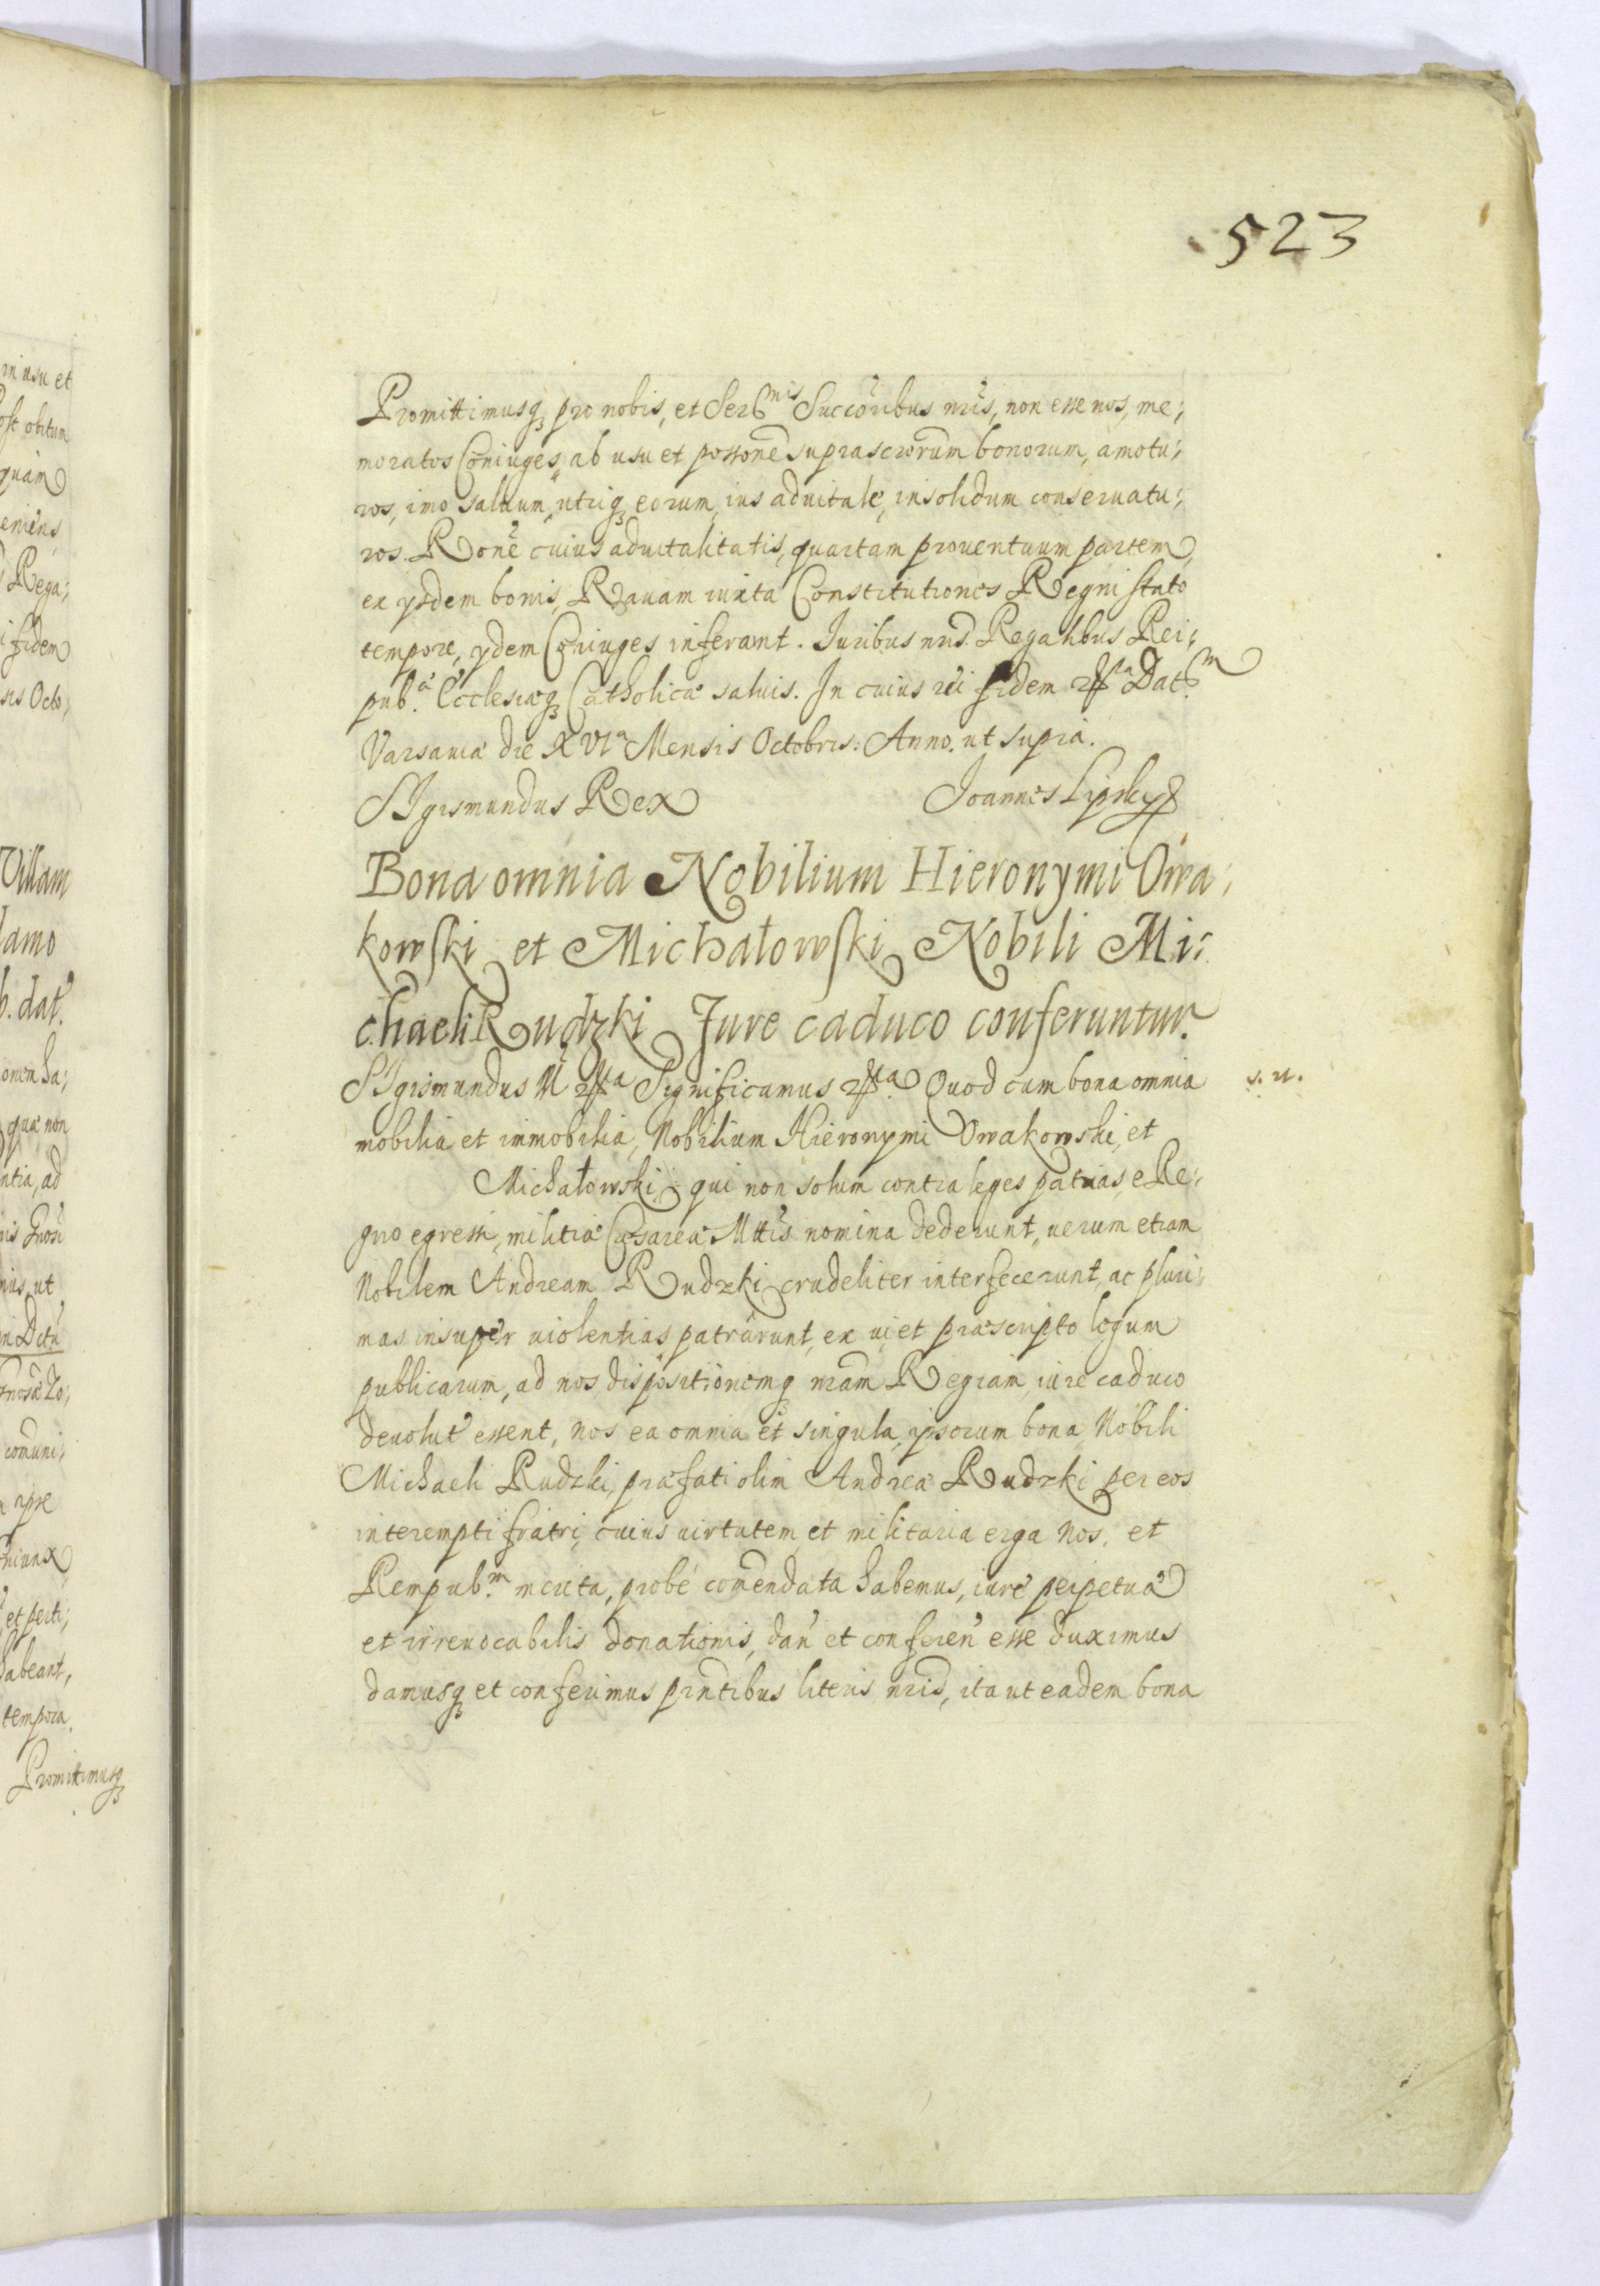 523
Promittimusq₃ pro nobis, et Ser6mis Succōribus nrīs, non esse nos, me;
moratos Cōniuges, ab usu et possonē suprascrōrum bonorum, amotu;
ros, imo saluum utriq₃ eorum, ius aduitale, insolidum conseruatu;
ros. Rone cuius aduitalitatis, quartam prouentuum partem,
ex ysdem bonis, Rauam iuxta Constitutiones Regni stato
tempore, ydem Cōniuges inferant. Juribus nrīs Regalibus Rei;
pub.æ Ecclesiæq₃ Catholicæ saluis. In cuius rei fidem Dat.
Varsauiæ die XVIa Mensis Octobris. Anno. ut supra.
SIgismundus Rex Joannes Lipsky
Bona omnia Nobilium Hieronymi Owa;
kowski et Michałowski Nobili Mi;
chaeli Rudzki Jure caduco conferuntur.
SIgismundus III Significamus Quod cum bona omnia s. n.
mobilia et immobilia, Nobilium Hieronymi Owakowski, et
Michałowski, qui non solum contra leges patrias, e Re;
gno egressi, militiæ Cæsareæ Mttis nomina dederunt, uerum etiam
Nobilem Andream Rudzki crudeliter interfecerunt, ac pluri;
mas insuper uiolentias patrarunt, ex ui et præscripto legum
publicarum, ad nos dispositionemq₃ nram Regiam iure caduco
deuolut' essent, nos ea omnia et singula, ipsorum bona Nobili
Michaeli Rudzki, præfati olim Andreæ Rudzki per eos
interempti fratri, cuius uirtutem, et militaria erga nos, et
Rempub.m merita, probè comendata habemus, iure perpetuæ
et irreuocabilis donationis, dan' et conferen' esse duximus
damusq₃ et conferimus pr̄ntibus literis nrīs, ita ut eadem bona